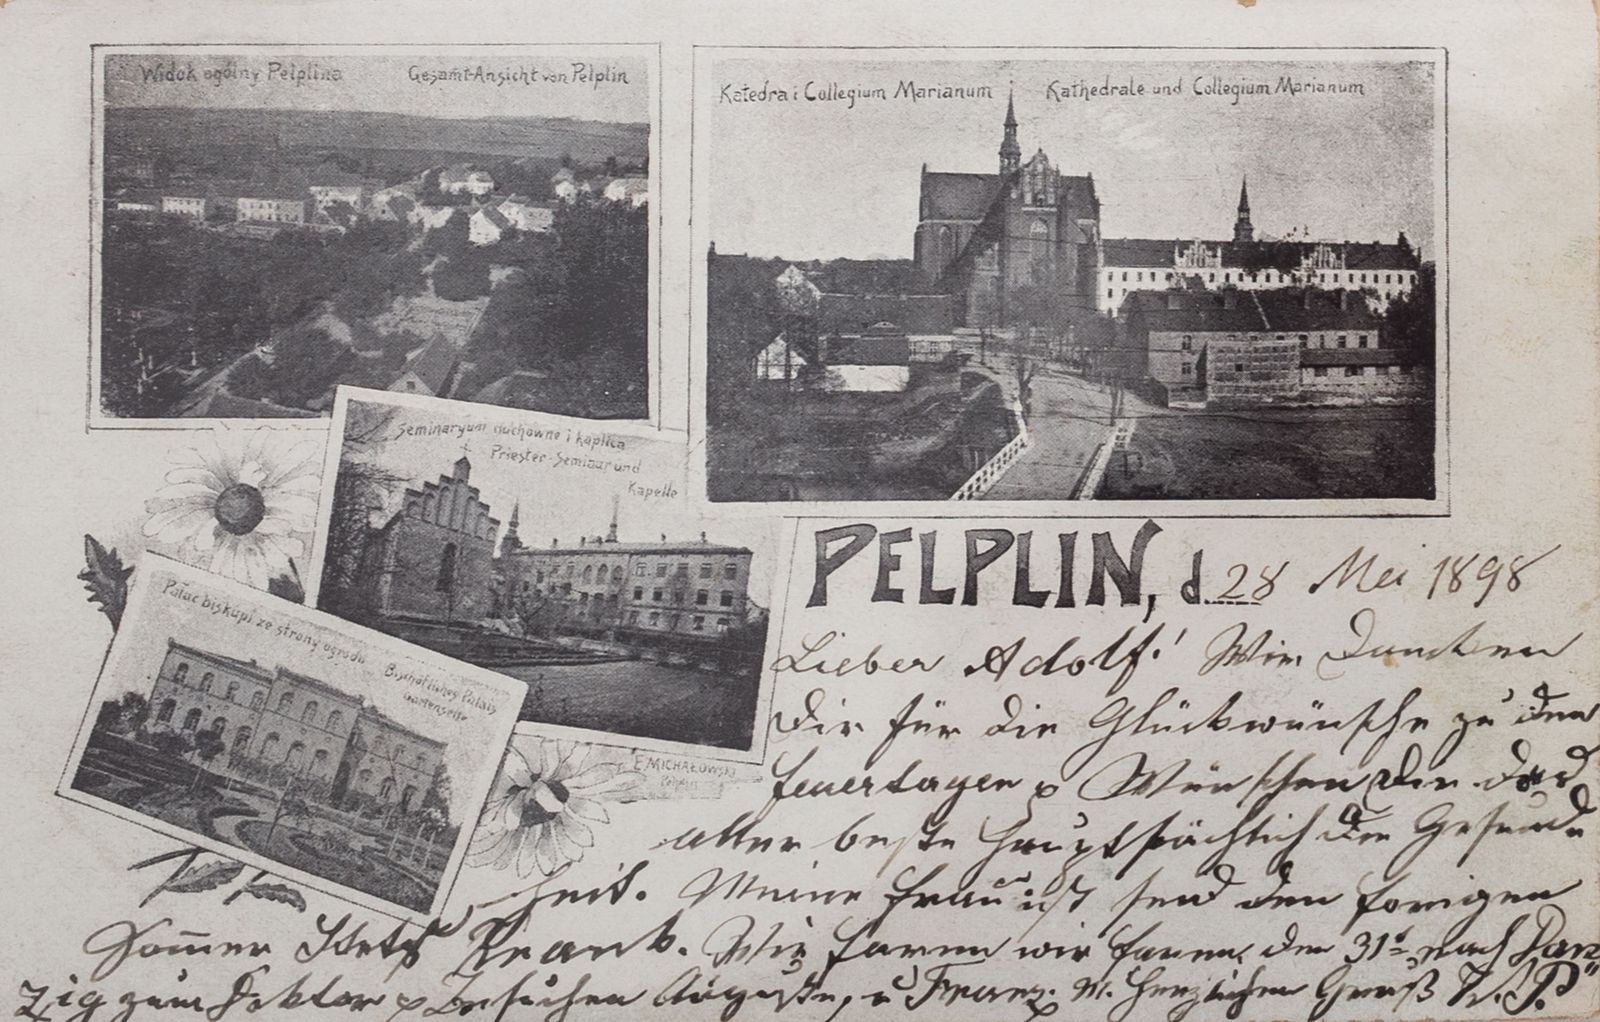 Widok ogólny Pelplina Gesamt-Ansicht von Pelplin
Katedra i Collegium Marianum Kathedrale und Collegium Marianum
Seminaryum duchowne i kaplica
Priester-Seminar und
Kapelle
Pałac biskupi ze strony ogrodu Bischöfliches Palais
Gartenseite
E. MICHAŁOWSKI
Pelplin
PELPLIN, d. 28 Mei 1898
Lieber Adolf! Wir Dancken
Dir für die Glückwünsche zu den
feuertagen u Wünschen Dir das
aller beste Hauptsächlich die Gesund
heit. Meine Frau ist seid den forigen
Sommer Stets Krank. Wir faren den 31t nach Dan
zig zum Doktor u Besuchen Auguste, u Franz. M. Herzlichen Gruß